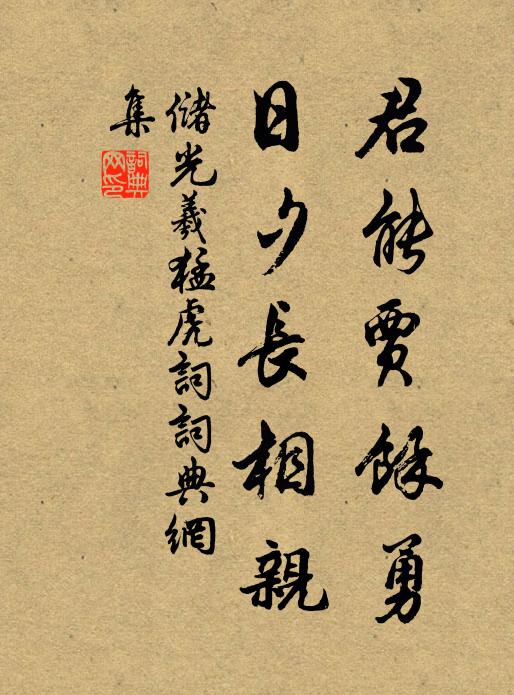 君能賈餘勇
日夕長相親
儲光羲猛虎詞詞典網
集
詞典
网印